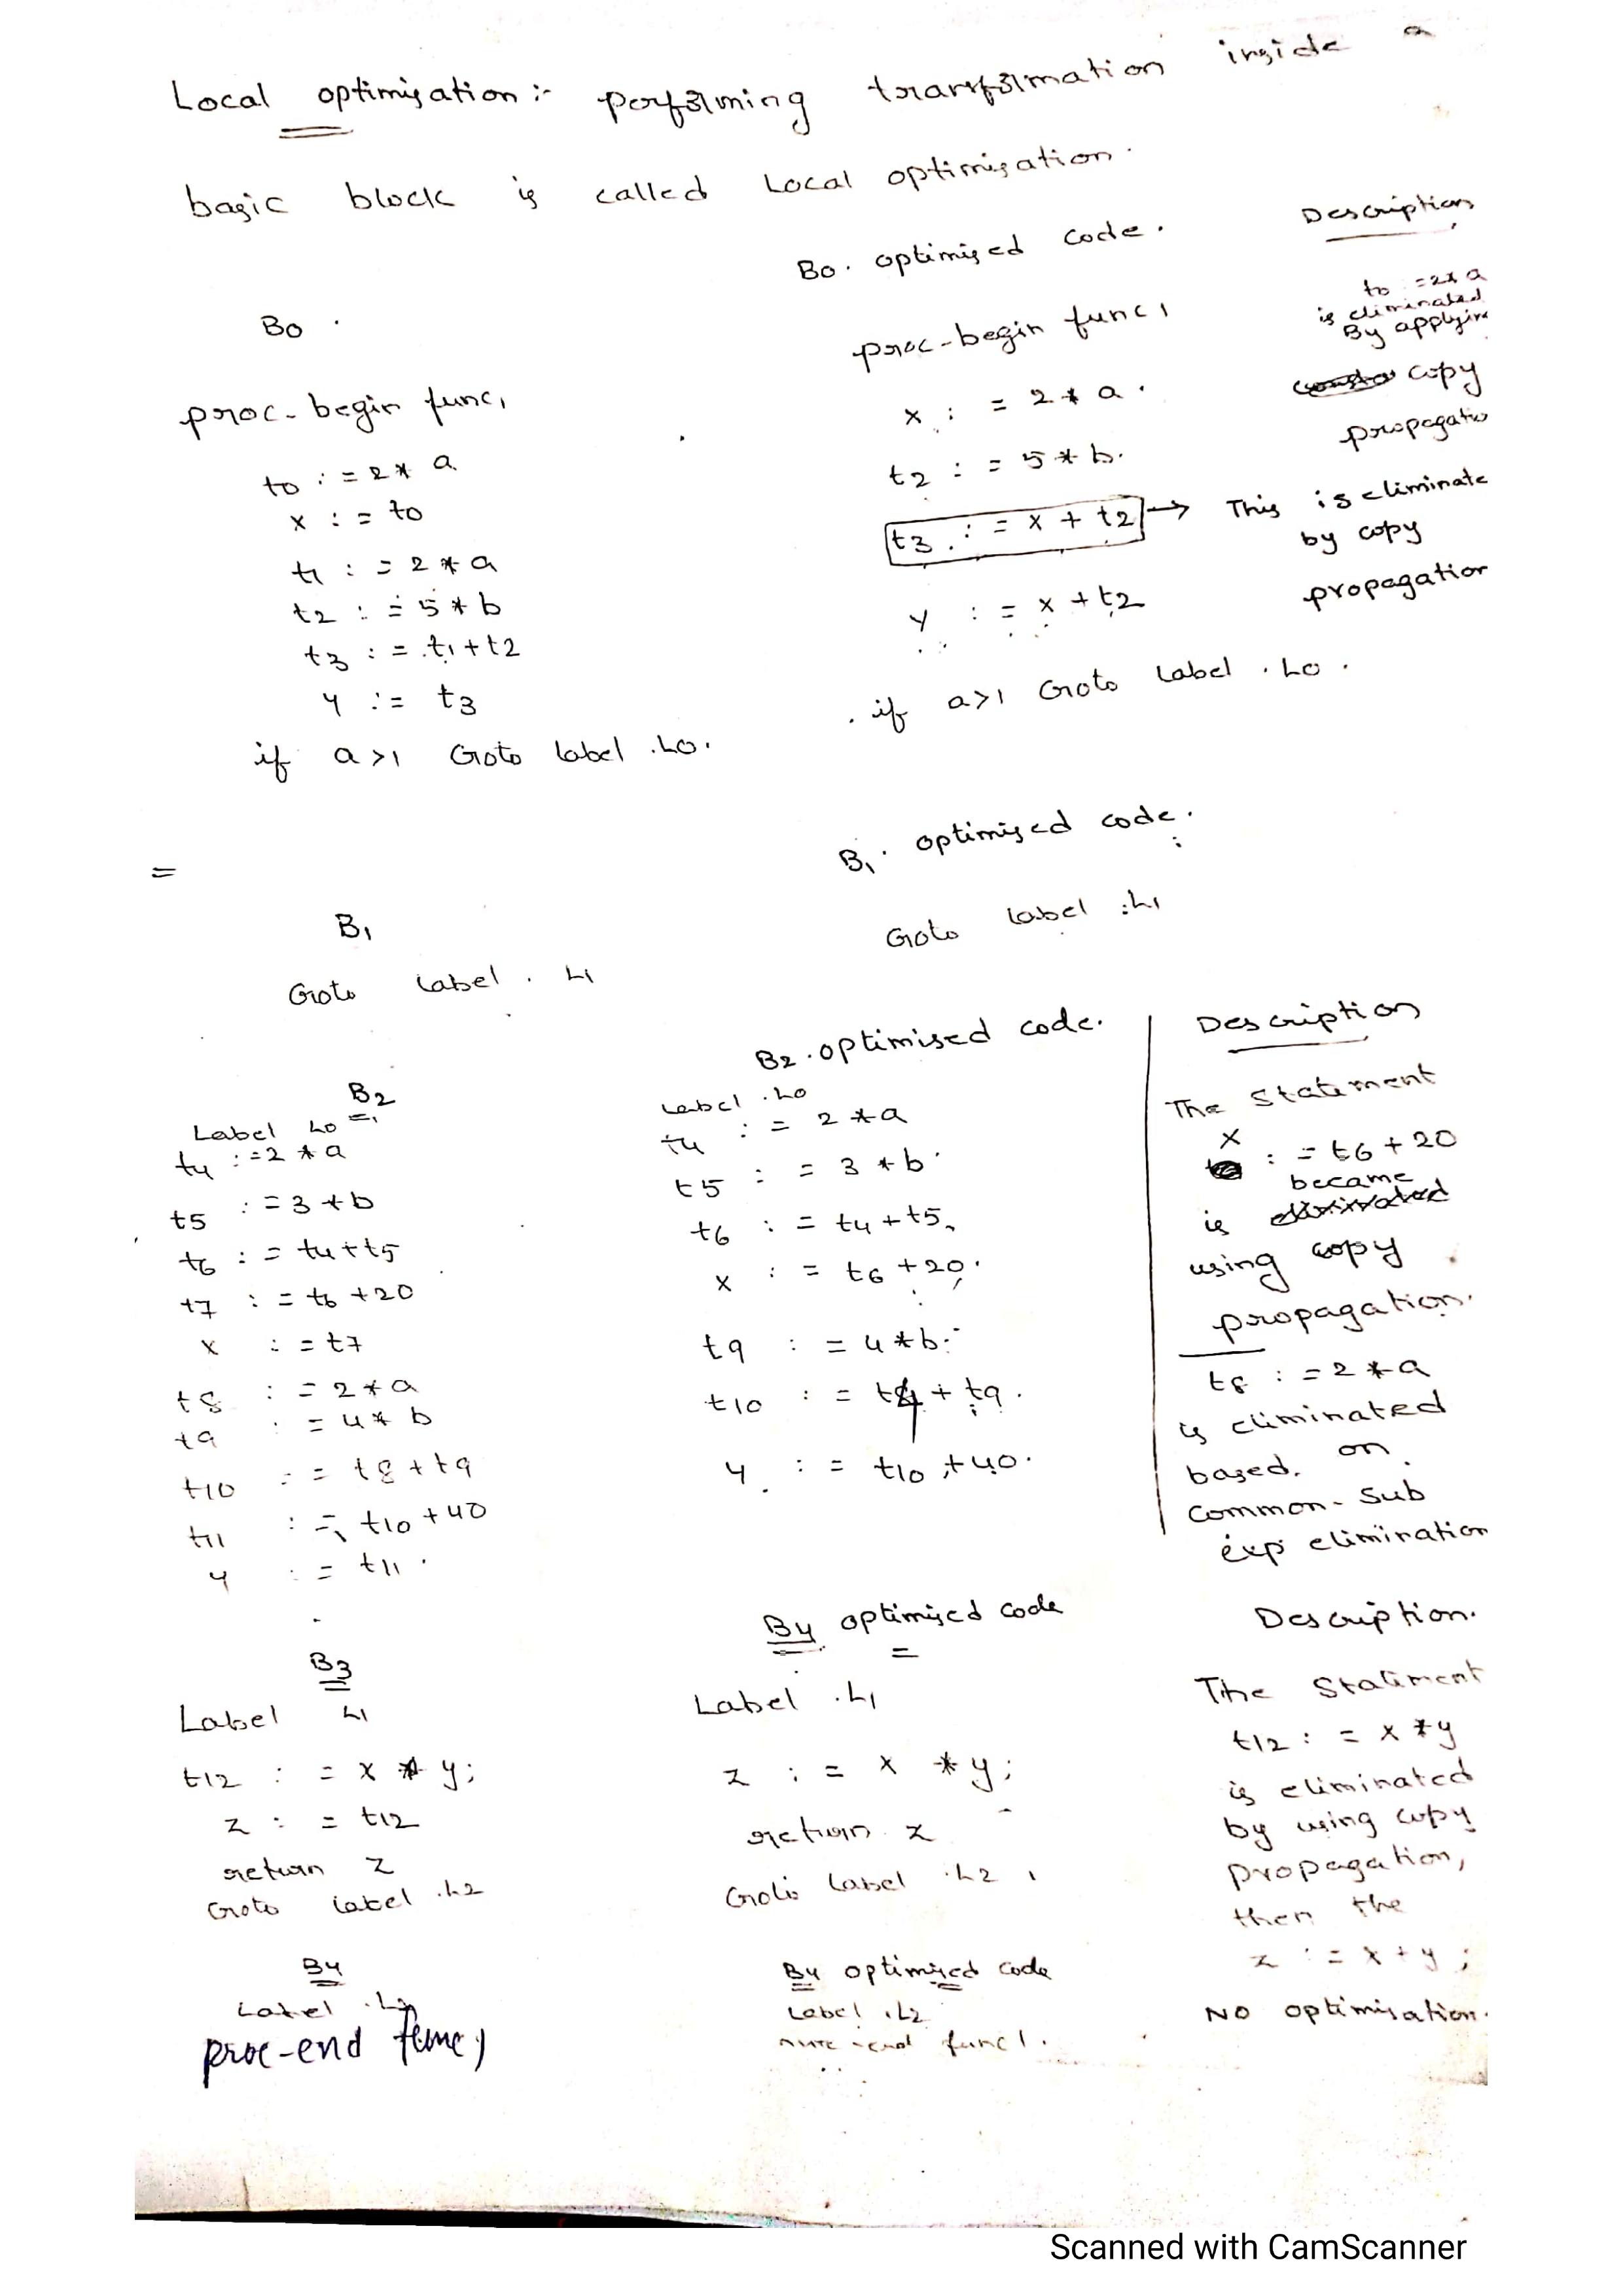 Local optimisation :- performing transformation inside a
basic block is called Local optimisation.
B0 .
proc-begin func1
t0 := 2 * a
x := t0
t1 := 2 * a
t2 := 5 * b
t3 := t1 + t2
y := t3
if a > 1 Goto label .L0.
B0. optimised code.
proc-begin func1
x := 2 * a .
t2 := 5 * b.
t3 := x + t2 → This is eliminate
y := x + t2
. if a>1 Goto Label . L0 .
Description
t0 := 2* a
is eliminated
By applyin
copy
propagatio
by copy
propagation
=
B1
Goto Label . L1
B1. optimised code.
Goto label :L1
B2
Label L0
t4 := 2 * a
t5 := 3 * b
t6 := t4 + t5
t7 := t6 + 20
x := t7
t8 := 2 * a
t9 := 4 * b
t10 := t8 + t9
t11 := t10 + 40
y := t11 .
B2 . optimised code.
Label .L0
t4 := 2 * a
t5 := 3 * b
t6 := t4 + t5
x := t6 + 20.
t9 := 4 * b
t10 := t4 + t9 .
y := t10 + 40.
Description
The Statement
x := t6 + 20
became
is eliminated
using copy
propagation.
t8 := 2 * a
is eliminated
based on
common-sub
exp elimination
B3
Label L1
t12 := x * y;
z := t12
return z
Goto label .L2
B4 optimised code
Label .L1
z := x * y;
return z
Goto Label .L2
Description.
The Statement
t12 := x * y
is eliminated
by using copy
propagation,
then the
z := x * y ;
B4
Label .L2
proc-end func1
B4 optimised code
Label .L2
proc-end func1.
NO optimisation.
Scanned with CamScanner